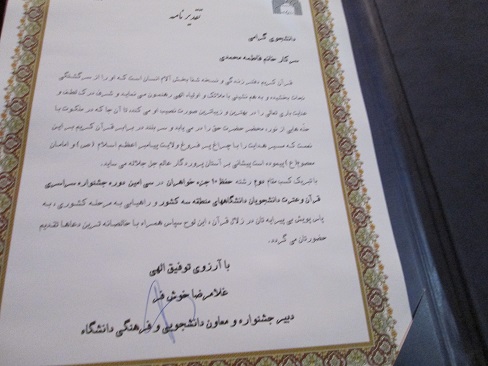 تقدیر نامه
دانشجوی گرامی
سرکار خانم فاطمه محمدی
قرآن کریم دفتر زندگی و نسخه شفا بخش آلام انسان است که او را از سرگشتگی
نجات بخشیده و به هم نشینی با ملائک و اولیاء الهی رهنمون می نماید و شرف درک لطف و
عنایت باری تعالی را در بهترین و زیباترین صورت نصیب او می کند؛ تا آن جا که در ملکوت با
هایی از نور، محضر حضرت حق را در می یابد و سر بلند در برابر قرآن کریم بر این
نعمت که مسیر هدایت را با چراغ پر فروغ ولایت پیامبر اعظم اسلام (ص) و امامان
معصوم(ع) پیموده است پیشانی بر آستان پروردگار عالم جل جلاله می ساید.
با تبریک کسب مقام دوم رشته حفظ ۱۰ جزء خواهران در سی امین دوره جشنواره سراسری
قرآن و عترت دانشجویان دانشگاههای منطقه سه کشور و راهیابی به مرحله کشوری ، به
پاس پویش بی پیرایه تان در زلال قرآن ، این لوح سپاس همراه با خالصانه ترین دعاها تقدیم
حضورتان می گردد.
با آرزوی توفیق الهی
غلامرضا خوش فر
دبیر جشنواره و معاون دانشجویی و فرهنگی دانشگاه